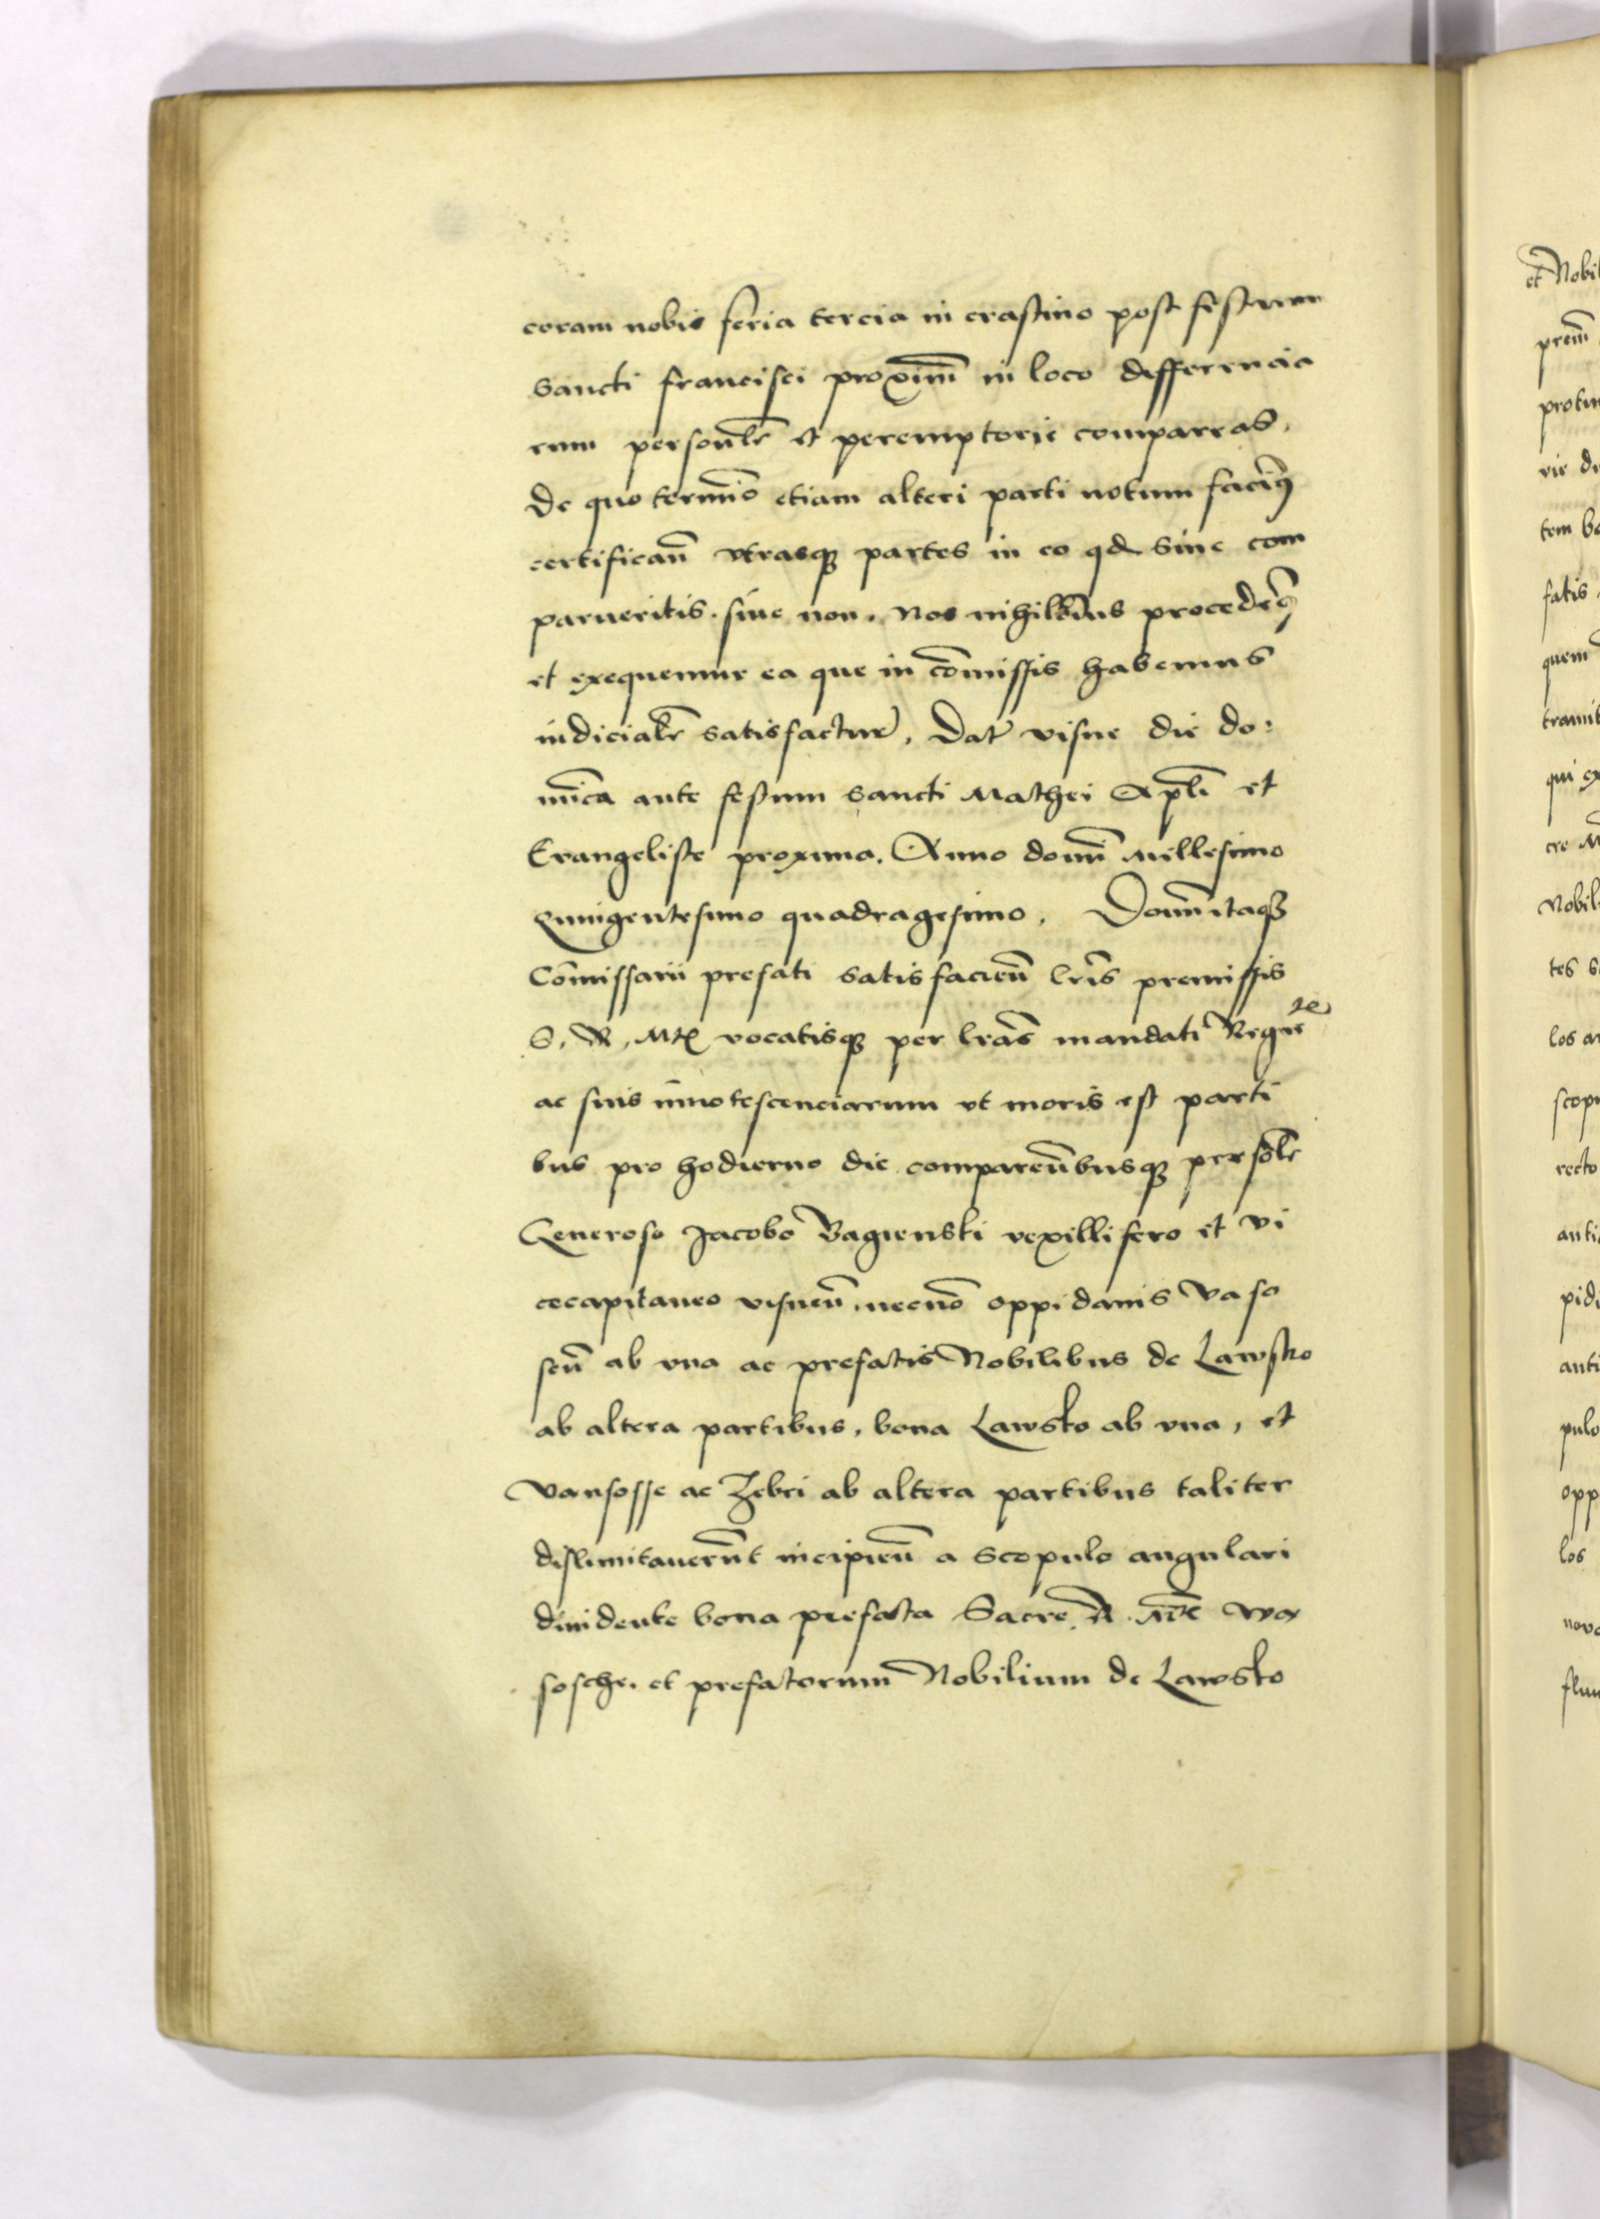 coram nobis feria tercia in crastino post festum
Sancti francisci proximu̅ in loco differencia
rum personl̅r et peremptorie comparras,
De quo termi̅o etiam alteri parti notum facim9
certifican̅ vtrasq3 partes in eo qd sine com
parueritis. siue non. Nos nihilo̅ius procedem9
et exequemur ea que in co̅missis habemus
iudicial̅r satisfactur̅, Dat̅ visne die do:
mi̅ca ante festum Sancti Mathei Ap̅li et
Evangeliste proxima. Anno domi̅ Millesimo
Quingentesimo quadragesimo. Domi̅ itaq3
Co̅missarii prefati satisfacien̅ lr̅is premissis
S. R. Mtis vocatisq3 per lr̅as mandati Regii
ac suis in̅notescenciarum vt moris est parti
bus pro hodierno die comparen̅busq3 person̅lr
Generoso Jacobo Bagienski vexillifero et vi
cecapitaneo visnen̅. necno̅ oppidanis Vaso
sen̅ ab vna ac prefatis Nobilibus de Lawsko
ab altera partibus, bona Lawsko ab vna, et
Vansosse ac Zebri ab altera partibus taliter
dislimitauerun̅t incipien̅ a scopulo angulari
diuidente bona prefata Sacre R. Mt̅is Wa
sosche. et prefatorum Nobilium de Lawsko
et Nobil
prem̅
tem
fatis
quem
qui
Nobil
tes
los
scopu
recto
pidi
anti
pulo
opp
los